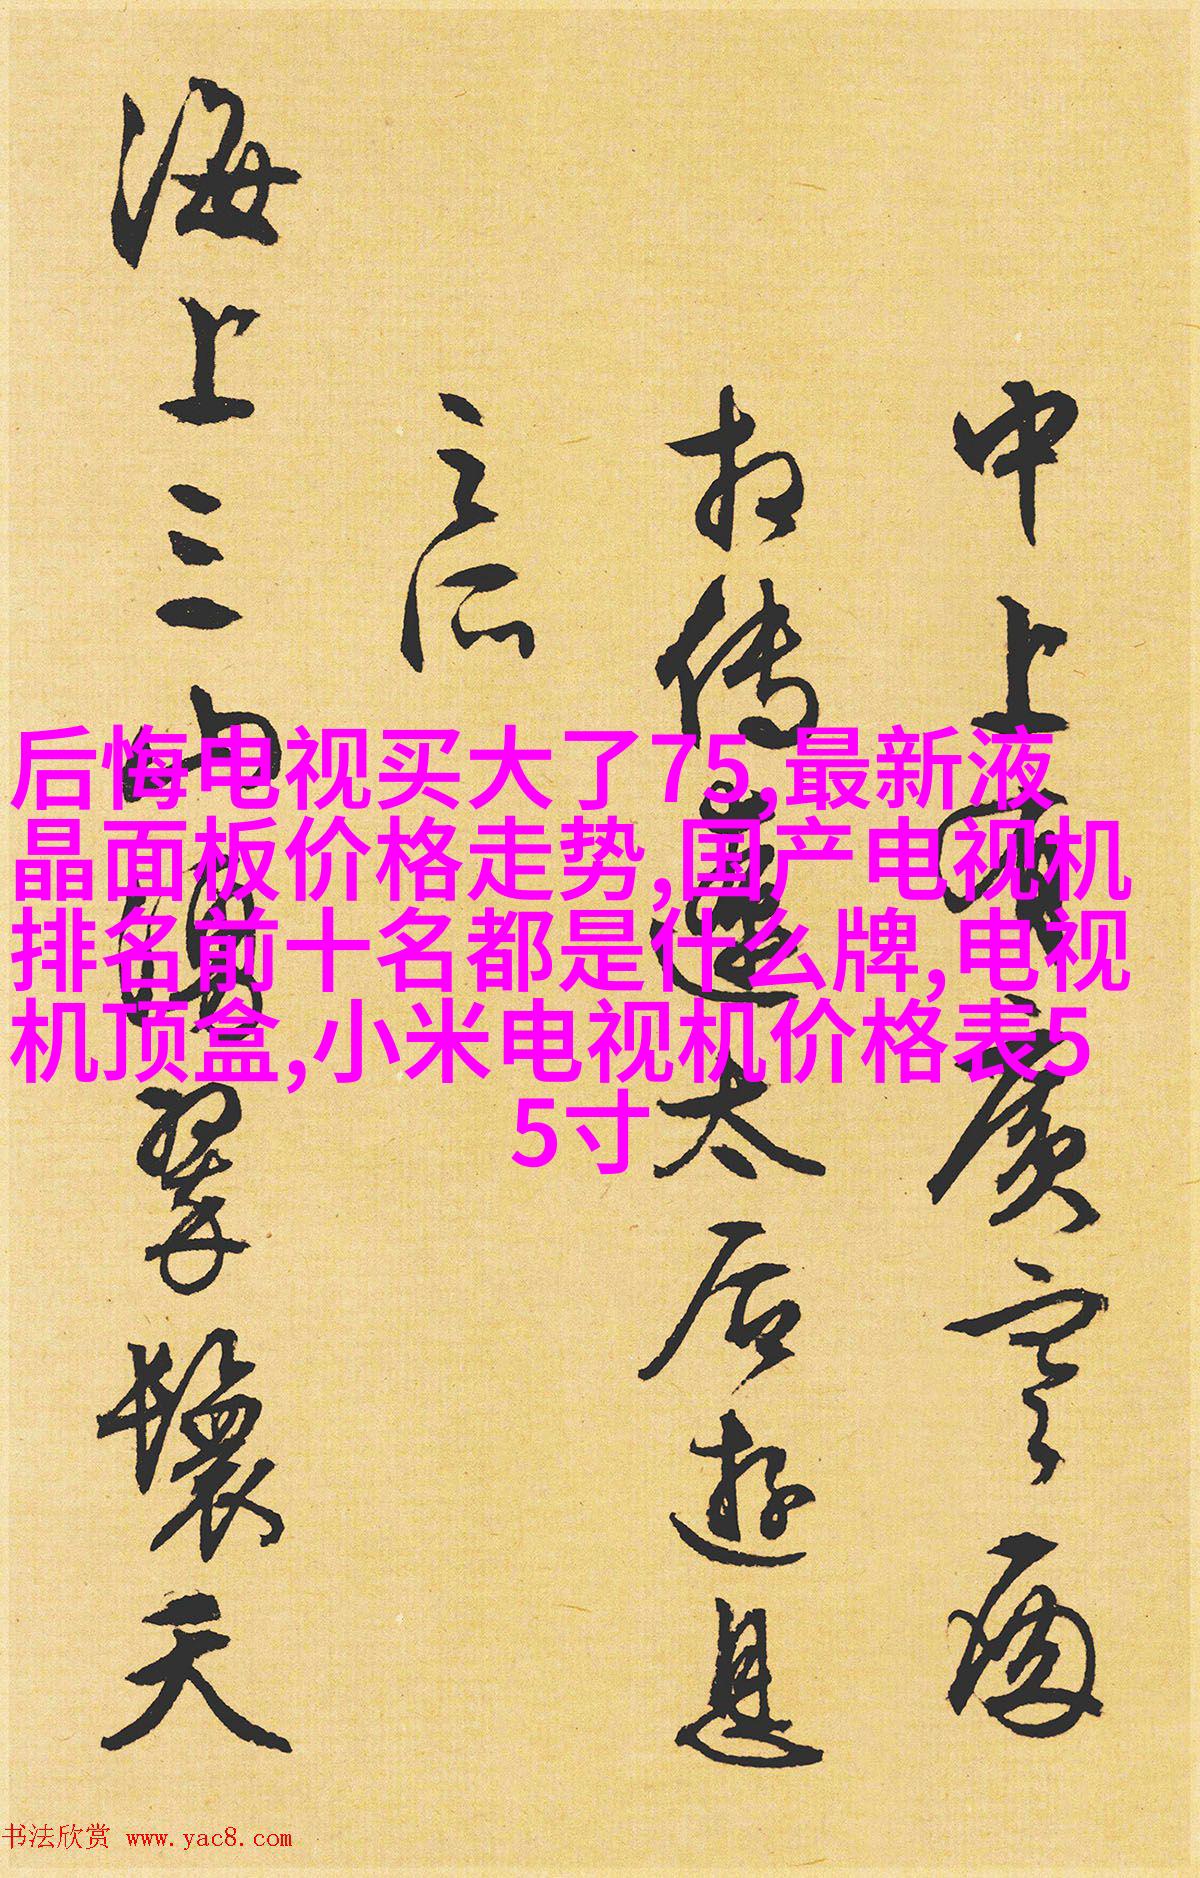 后悔电视买大了75,最新液
晶面板价格走势,国产电视机
排名前十名都是什么牌,电视
机顶盒,小米电视机价格表5
5寸
中上有廣寒殿
相傳遼太后遊息
之所
海上三山翠鬟天
书法欣赏 www.yac8.com